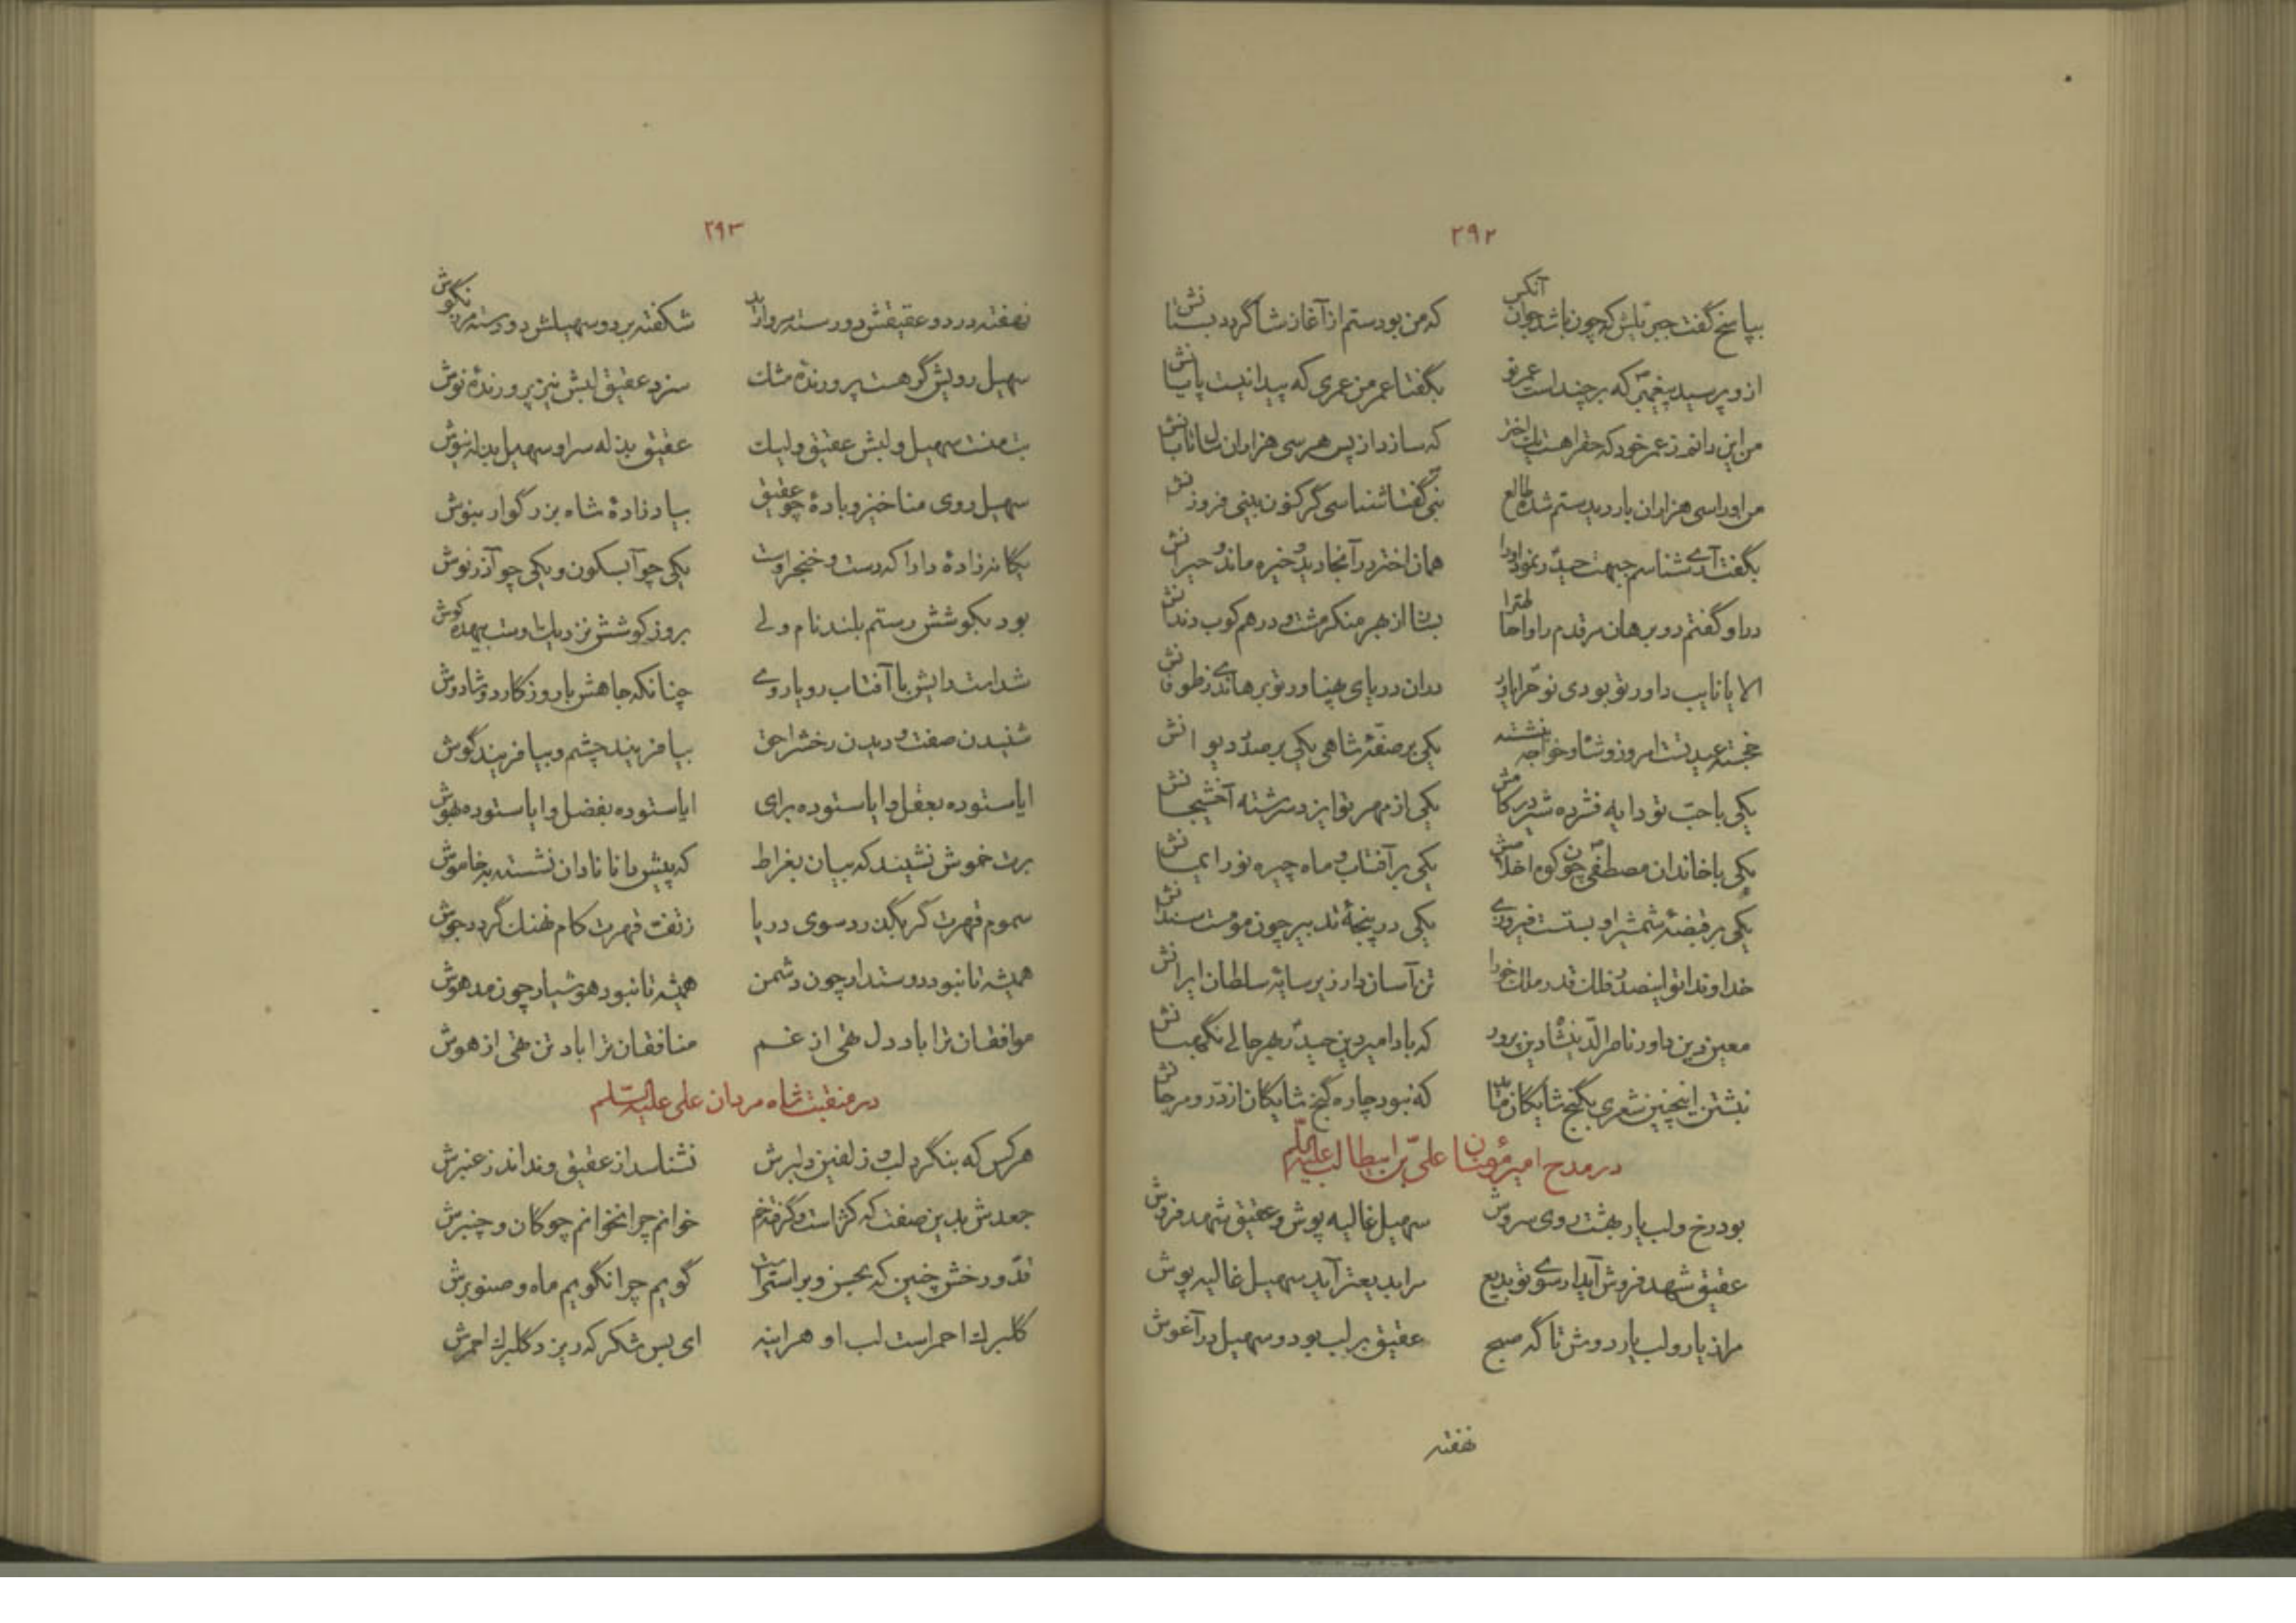 ۲۹۲
بپاسخ گفت جبریلش که چون باشد جوان آنکس که من بودستم از آغاز شاگرد دبستانش
ازو پرسید پیغمبر که برچند است عمر تو بگفتا عمر من عمری که پیدا نیست پایانش
من این دانم ز عمر خود که حق را هست یک اختر که سازد از پس هر سی هزاران سال تابانش
من او را سی هزاران بار دیدستم شده طالع نبی گفتا شناسی گر کنون بینی فروزانش
بگفت آری شناسم جبهت حیدر نمود او را همان اختر در آنجا دید و خیره ماند و حیرانش
الا یا نایب داور تو بودی نوح را یاور در آن دریای پهناور تو برهاندی ز طوفانش
خجسته عید تست امروز و شاد و خواجه بنشسته یکی بر صفهٔ شاهی یکی بر صدر دیوانش
یکی با حب تو دایه فشرده شیر در کامش یکی از مهر تو ایزد سرشته آخشیجانش
یکی با خاندان مصطفی چون کوه اخلاصش یکی بر آفتاب و ماه چیره نور ایمانش
یکی بر قبضهٔ شمشیر او بسته است فیروزی یکی در پنجهٔ تدبیر چون مومست سندانش
خداوندا تو این صدر فلک قدر ملک خو را تن آسان دار زیر سایهٔ سلطان ایرانش
معین دین داور ناصرالدین شاه دین پرور که بادا میر دین حیدر بهر حالی نگهبانش
نبشتن اینچنین شعری بگنج شایگان ماند که نبود چاره گنج شایگان از در و مرجانش
در مدح امیر مؤمنان علی بن ابیطالب علیه السلام
بود رخ و لب یار بهشت روی سروش سهیل غالیه پوش و عقیق شهد فروش
عقیق شهد فروش آید ار سوی تو بدیع مرا بدیع تر آید سهیل غالیه پوش
مرا ز یار و لب یار دوش تا گه صبح عقیق بر لب بود و سهیل در آغوش
نهفته
۲۹۳
نهفته در دو عقیقش دو رسته مروارید شکفته بر دو سهیلش دو دسته مرزنگوش
سهیل رویش گر هست پرورندهٔ مشک سزد عقیق لبش نیز پرورندهٔ نوش
بت منست سهیل و لبش عقیق ولیک عقیق بذله سرا و سهیل بذله نیوش
سهیل روی منا خیز و بادهٔ چو عقیق بیاد زادهٔ شاه بزرگوار بنوش
یگانه زادهٔ دارا که دست و خنجر اوست یکی چو آبسکون و یکی چو آذرنوش
بود بکوشش رستم بلند نام ولی بروز کوشش نزدیک اوست بیهده کوش
شد است رایش با آفتاب رویاروی چنانکه جاهش با روزگار دوشادوش
شنیدن صفت و دیدن رخش را حق بیافرینند چشم و بیافریند گوش
ایا ستوده بعقل و ایا ستوده برای ایا ستوده بفضل و ایا ستوده بهوش
برت خموش نشیند که بیان بقراط که پیش دانا نادان نشسته به خاموش
سموم قهرت گر بگذرد سوی دریا ز تفت قهرت کام نهنگ گردد جوش
همیشه تا نبود دوستدار چون دشمن همیشه تا نبود هوشیار چون مدهوش
موافقان ترا باد دل تهی از غم منافقان ترا باد تن تهی از هوش
در منقبت شاه مردان علی علیه السلم
هر کس که بنگرد لب و زلفین دلبرش نشناسد از عقیق و نداند ز عنبرش
جعدش بدین صفت که کژ است و گرفته خم خوانم چرا نخوانم چوگان و چنبرش
قد و رخش چنین که بحسن و براستی است گویم چرا نگویم ماه و صنوبرش
گلبرگ احمر است لب او هر اینه ای بس شکر که ریزد گلبرگ احمرش